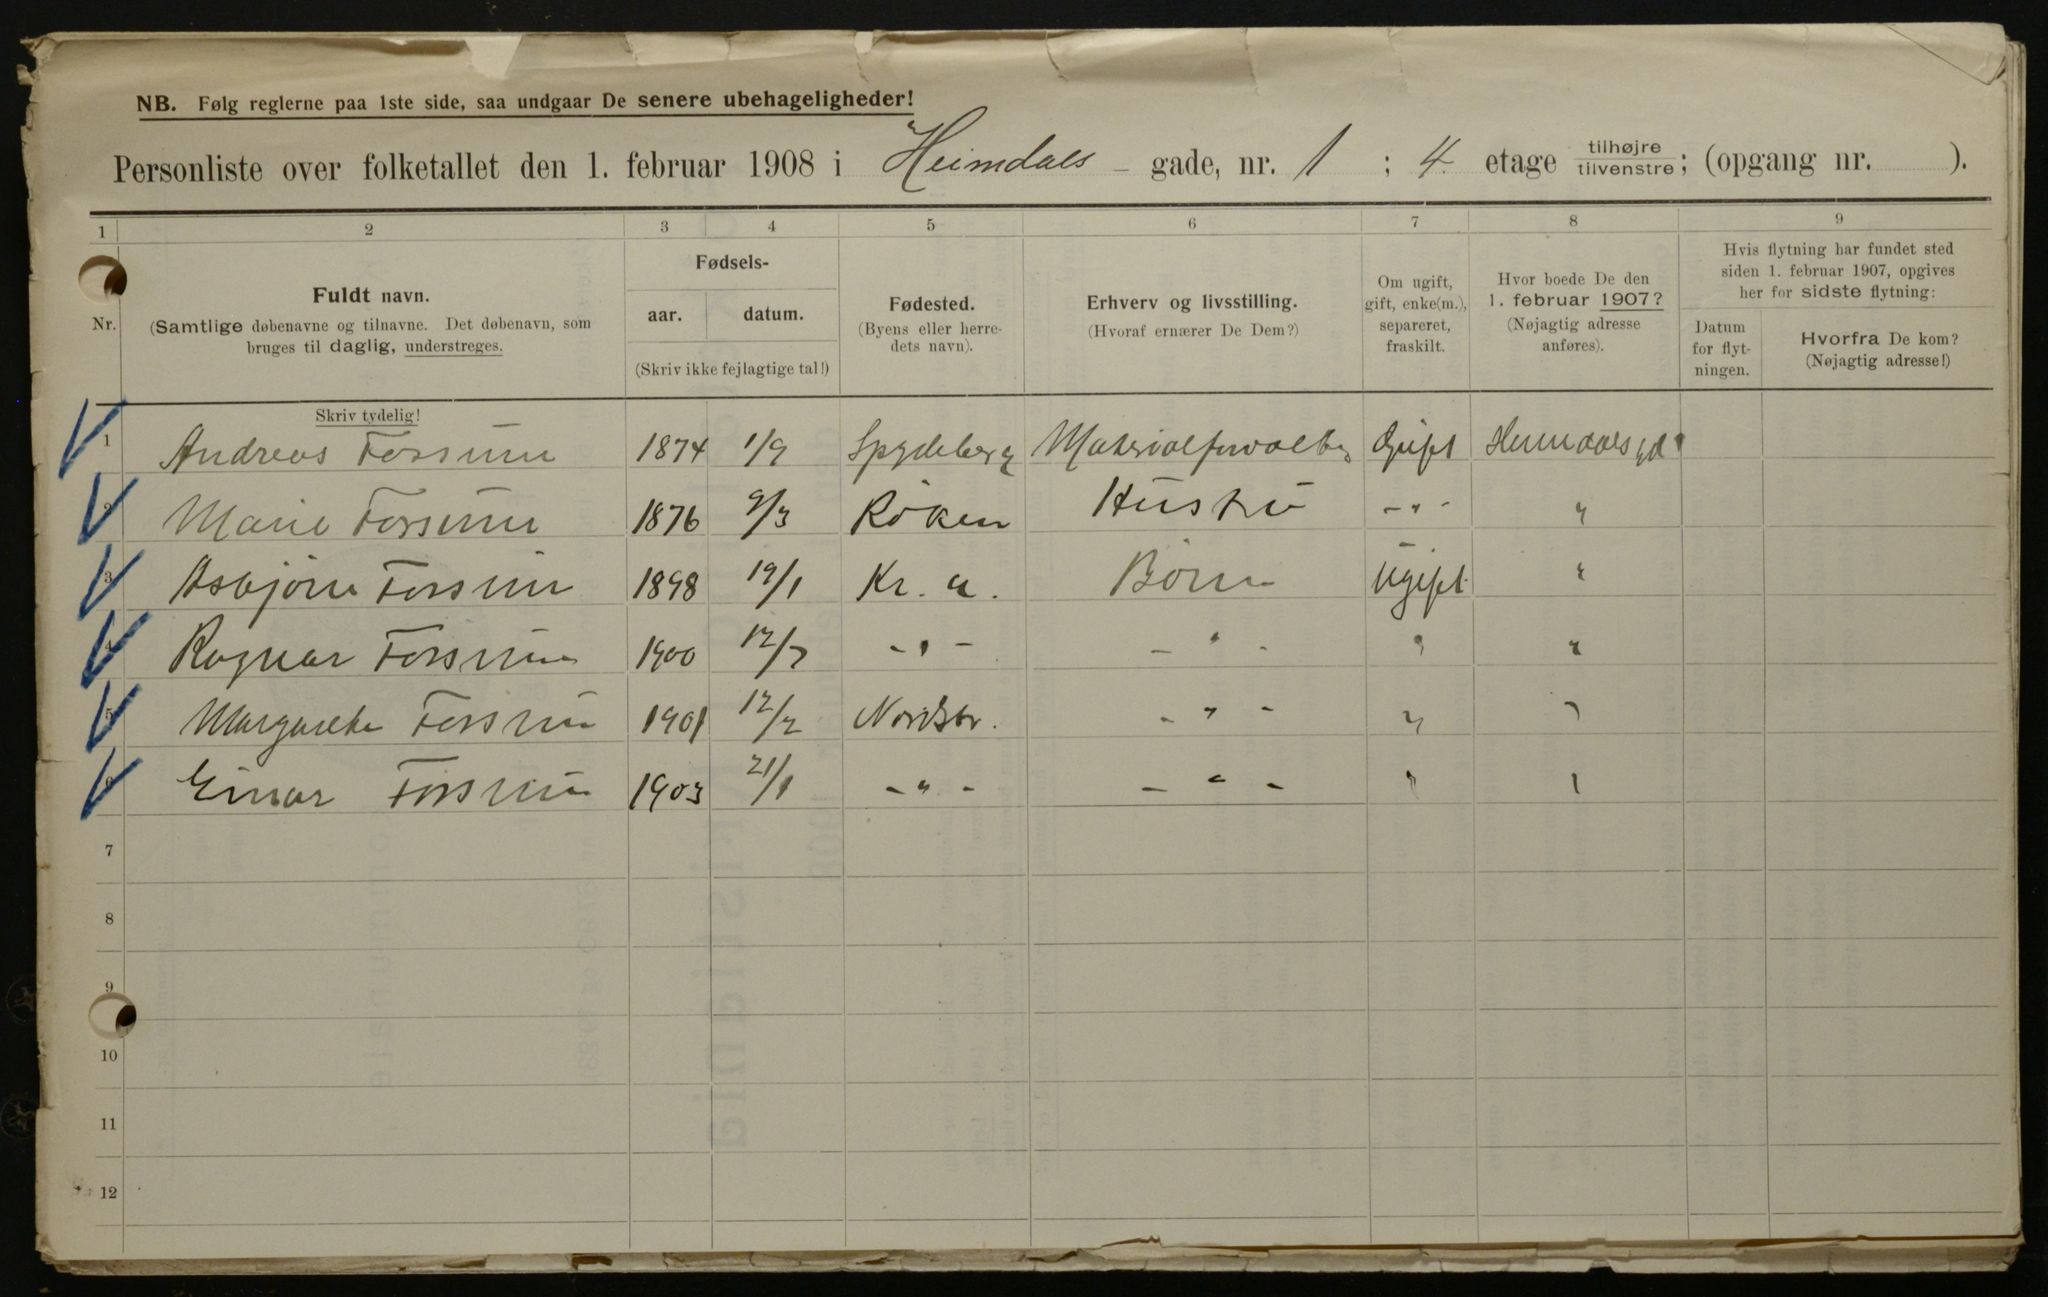 NB. Følg reglerne paa 1ste side, saa undgaar De senere ubehageligheder!
Personliste over folketallet den 1. februar 1908 i Heimdals - gade, nr. 1 ; 4. etage tilhøjre/tilvenstre; (opgang nr. ).
1 2 3 4 5 6 7 8 9
Nr. Fuldt navn. (Samtlige døbenavne og tilnavne. Det døbenavn, som bruges til daglig, understreges.
Fødsels-
aar. datum.
(Skriv ikke fejlagtige tal!)
Fødested. (Byens eller herredets navn).
Erhverv og livsstilling. (Hvoraf ernærer De Dem?)
Om ugift, gift, enke(m.), separeret, fraskilt.
Hvor boede De den 1. februar 1907? (Nøjagtig adresse anføres).
Hvis flytning har fundet sted siden 1. februar 1907, opgives her for sidste flytning:
Datum for flytningen.
Hvorfra De kom? (Nøjagtig adresse!)
Skriv tydelig!
1 Andreas Forsum 1874 1/9 Spydeberg Materialforvalter Gift Heimdalsgd 1
2 Marie Forsum 1876 9/3 Röken Hustru - " - "
3 Asbjörn Forsum 1898 19/1 Kr. a. Börn Ugift "
4 Ragnar Forsum 1900 12/7 - " - - " - " "
5 Margarethe Forsum 1901 12/2 Nordstr. - " - " "
6 Einar Forsum 1903 21/1 - " - - " - " "
7
8
9
10
11
12